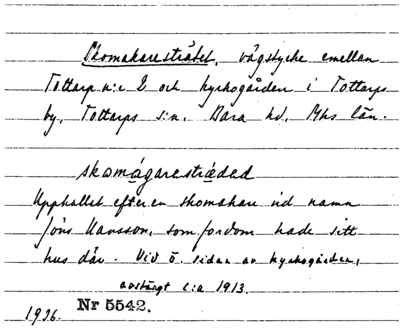 Skomakaresträtet, vägstycke emellan
Tottarp n:r 2 och kyrkogården i Tottarps
by, Tottarps s:n, Bara hd, Mhs län.
skomågaresträded
Upphallet efter en skomakare vid namn
Jöns Hansson, som fordom hade sitt
hus där. Vid ö. sidan av kyrkogården,
avstängt c:a 1913.
1926. Nr 5542.